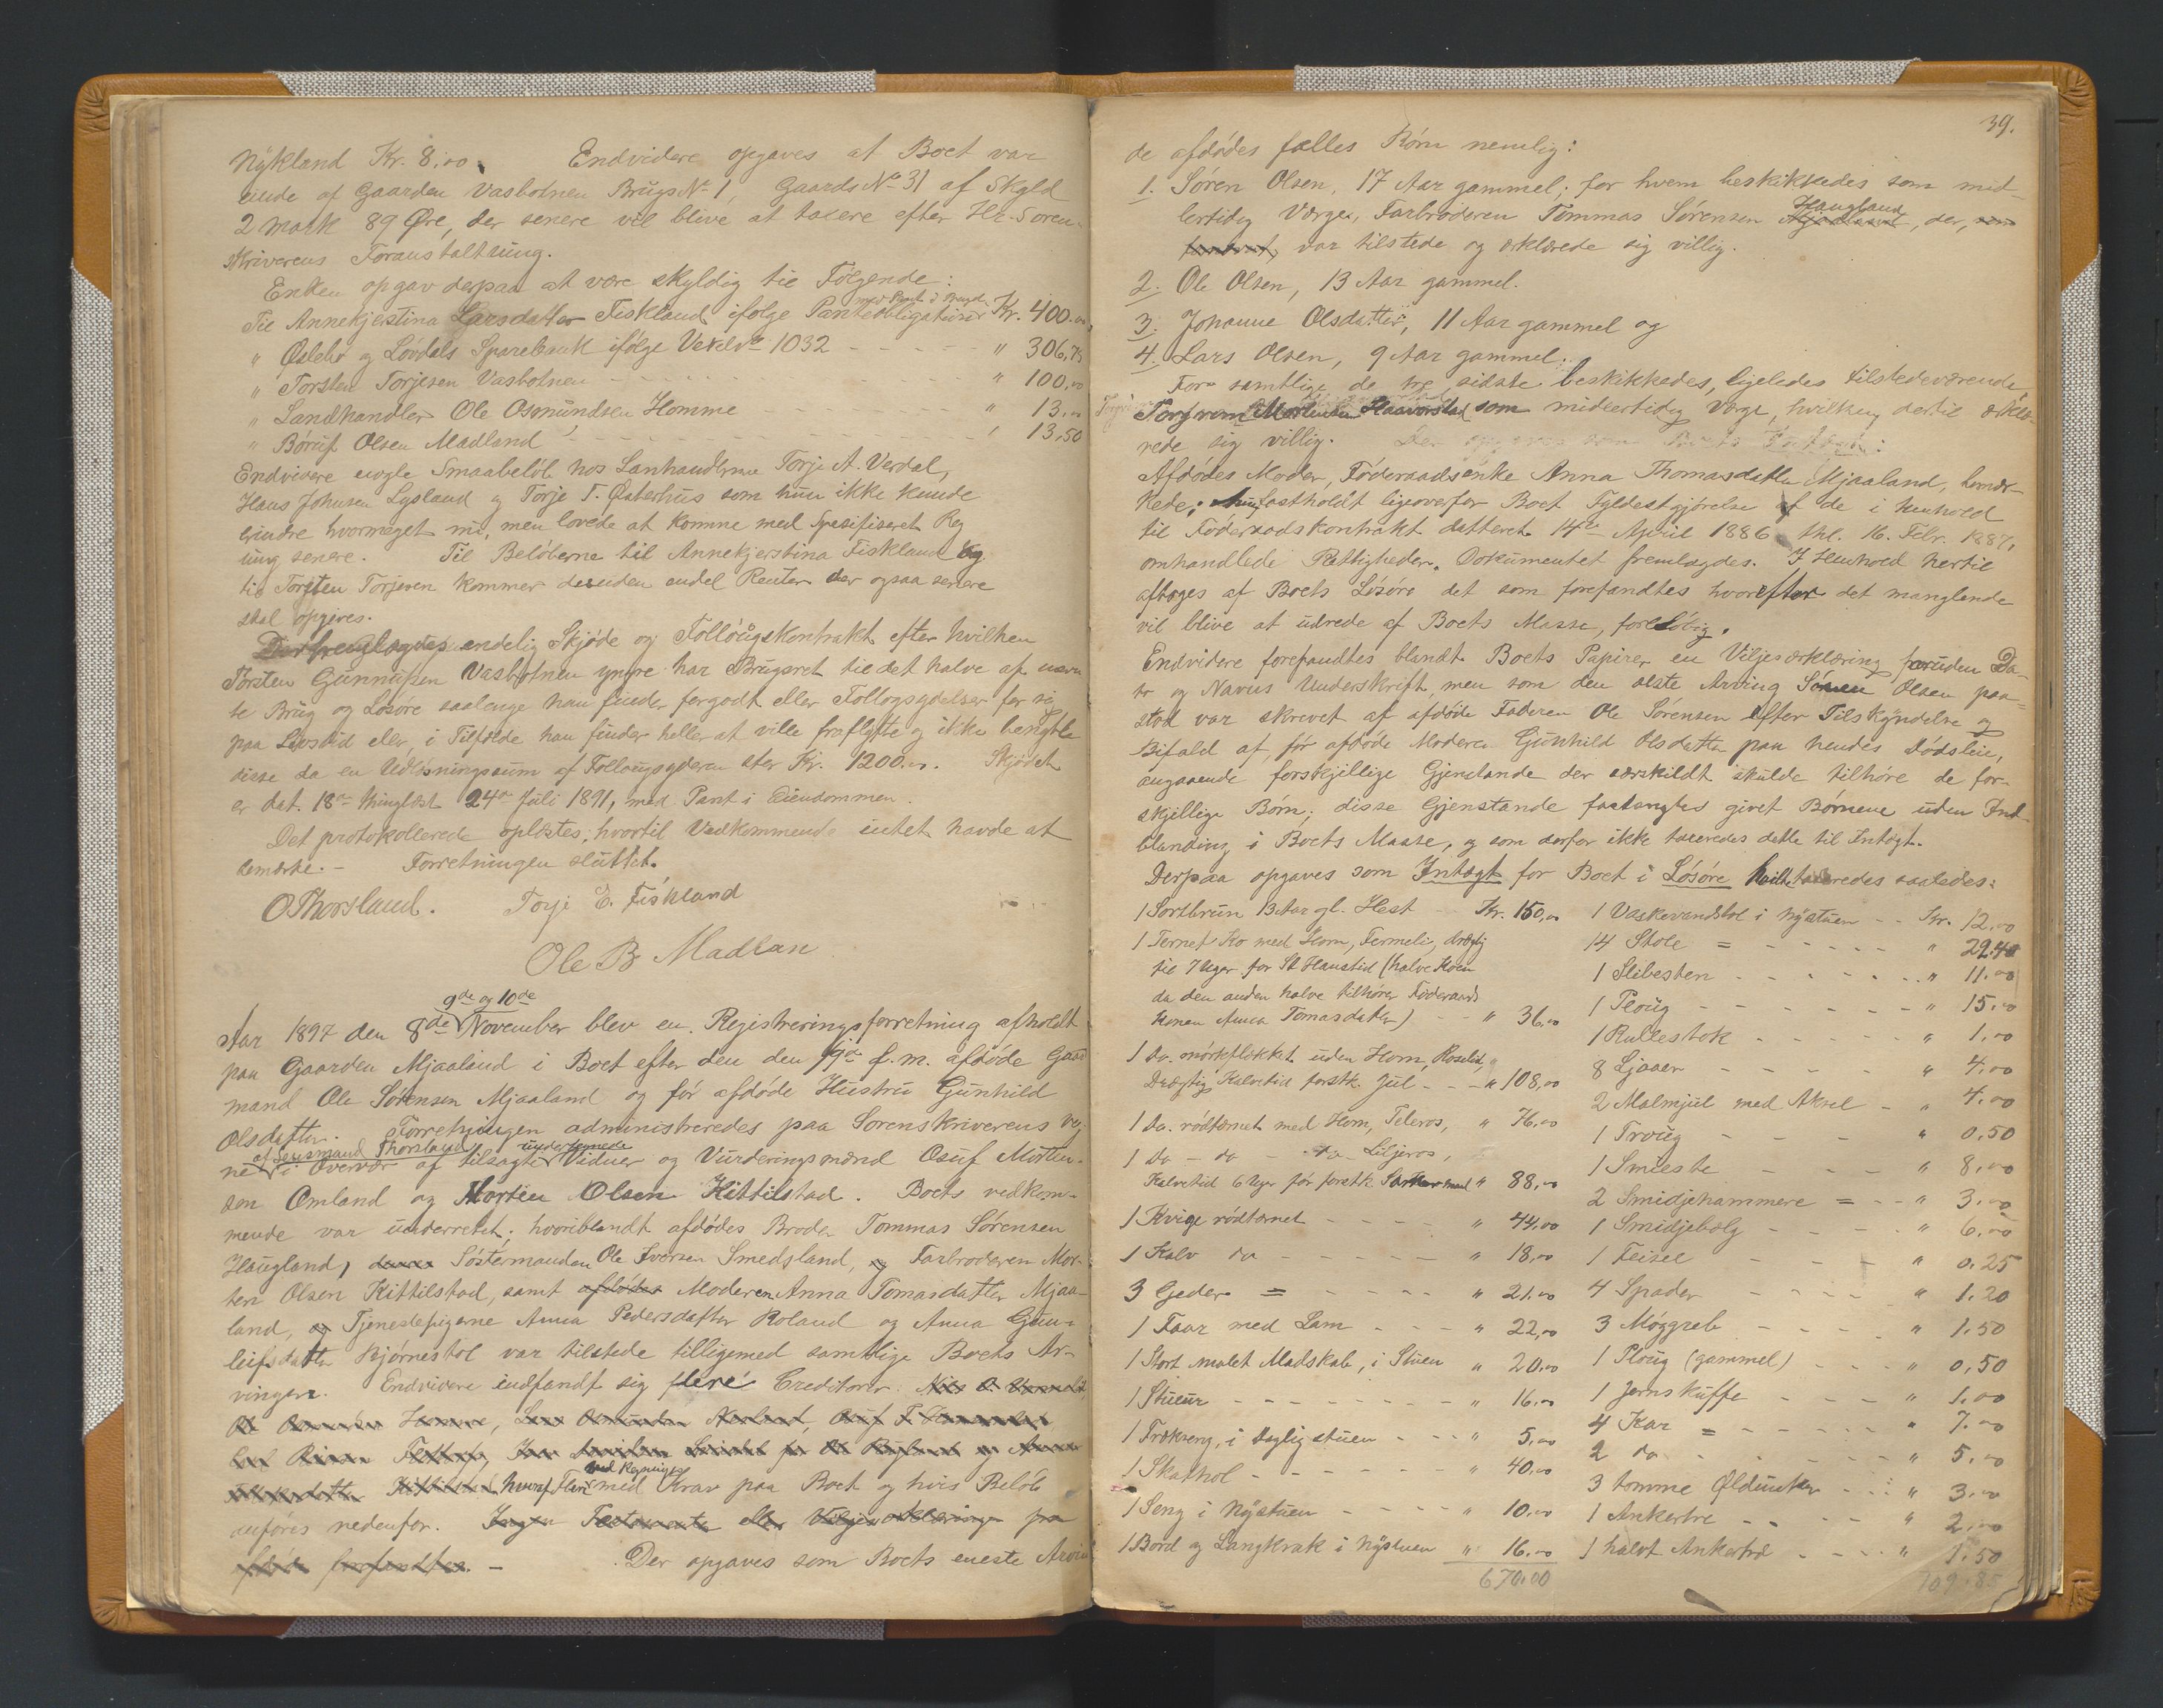 Nykland Kr. 8.00. Endvidere opgaves at Boet var
eiende af Gaarden Vasbotnen Brugs No 1, Gaards No 31 af Skyld
2 Mark 89 Øre, der senere vil blive at taxere efter Hr. Soren-
skriverens Foranstaltning.
Enken opgav derpaa at være skyldig til Følgende:
med Pant i Brugd.
Til Annekjerstina Larsdatter Fiskland ifølge Panteobligationer Kr. 400.00
" Øslebø og Løvdals Sparebank ifølge Vexel No 1032 - - - - - " 306,75
" Torsten Torjesen Vasbotnen - - - - - " 100,00
" Landhandler Ole Osmundsen Homme - - - - " 13,00
" Børuf Olsen Madland - - - - - " 13,50
Endvidere nogle Smaabeløb hos Lanhandlerne Torje A. Verdal,
Hans Johnsen Lysland og Torje T. Østerhus som hun ikke kunde
erindre hvormeget nu, men lovede at komme med Spesifiseret Reg
ning senere. Til Beløberne til Annekjerstina Fiskland og
til Torsten Torjesen kommer desuden endel Renter der ogsaa senere
skal opgives.
Der fremlagdes endelig Skjøde og Follougskontrakt efter hvilken
Torsten Gunnufsen Vasbotnen yngre har Brugsret til det halve af nævn
te Brug og Løsøre saalenge han finder forgodt eller Follogsydelser for sig
paa Livstid eller, i Tilfælde han finder heller at ville fraflytte og ikke benytte
disse da en Udløsningssum af Follougsyderen stor Kr. 1200.00. Skjødet
er dat. 18de thinglæst 24de Juli 1891, med Pant i Eiendommen.
Det protokollerede oplæstes; hvortil Vedkommende intet havde at
bemærke. - Forretningen sluttet.
OThorsland. Torje E. Fiskland
Ole B Madlan
9de og 10de
Aar 1897 den 8de November blev en Registreringsforretning afholdt
paa Gaarden Mjaaland i Boet efter den den f. m. afdøde Gaar
mand Ole Sørensen Mjaaland og før afdøde Hustru Gunhild
Olsdatter. Forretningen administreredes paa Sorenskriverens veg
af Lensmand Thorsland undertegnede
ne i Overvær af tilsagte Vidner og Vurderingsmænd Osuf Morten-
sen Omland og Morten Olsen Kittilstad. Boets vedkom-
mende var underrettet; hvoriblandt afdødes Broder Tommas Sørensen
Haugland, Søstermanden Ole Iversen Smedsland, og Farbroderen Mor-
ten Olsen Kittilstad, samt afdødes Moderen Anna Tomasdatter Mjaa-
land, og Tjenestepigerne Anna Pedersdatter Roland og Anna Gun-
leifsdatter Bjørnestøl var tilstede tilligemed samtlige Boets Ar-
vinger. Endvidere indfandt sig flere Creditorer:
ved Regninger
hvoraf Flere med Krav paa Boet og hvis Beløb
anføres nedenfor. Ingen Testamente eller Viljeserklæringer fra
forefandtes. - Der opgaves som Boets eneste Arvin
39.
de afdødes fælles Børn nemlig:
1. Søren Olsen, 17 Aar gammel; for hvem beskikkedes som mid-
Haugland
lertidig Værge, Farbroderen Tommas Sørensen , der,
var tilstede og erklærede sig villig.
2. Ole Olsen, 13 Aar gammel.
3. Johanne Olsdatter, 11 Aar gammel og
4. Lars Olsen, 9 Aar gammel.
For samtlige de tre sidste beskikkedes, ligeledes tilstedeværende
Mortensen Haaverstad som midlertidig Værge, hvilken dertil erklæ-
rede sig villig.
Afdødes Moder, Føderaadsenke Anna Thomasdatter Mjaaland, bemær-
kede; hun fastholdt ligeoverfor Boet Fyldestgjørelse af de i henhold
til Føderaadskontrakt datteret 14de April 1886 thl. 16. Febr. 1887,
omhandlede Rettigheder. Dokumentet fremlagdes. I Henhold hertil
aftoges af Boets Løsøre det som forefandtes hvorefter det manglende
vil blive at udrede af Boets Masse, foreløbig.
Endvidere forefandtes blandt Boets Papirer en Viljeserklæring foruden Da-
to og Navns Underskrift, men som den ælste Arving Søren Olsen paa-
stod var skrevet af afdøde Faderen Ole Sørensen efter Tilskyndelse og
Bifald af, før afdøde Moderen Gunhild Olsdatter paa hendes Dødsleie,
angaaende forskjellige Gjenstande der særskildt skulde tilhøre de for-
skjellige Børn; disse Gjenstande fastangtes givet Børnene uden Ind-
blanding i Boets Masse, og som derfor ikke taxeredes dette til Indtægt.
Derpaa opgaves som Indtægt for Boet i Løsøre hvilke taxeredes saaledes:
1 Sortbrun 13 Aar gl. Hest - Kr. 150,00
1 Ternet Ko med Horn, Fermeli, drægtig
til 7 Uger før St Hanstid (halve Koen
da den anden halve tilhører Føderaads
konen Anna Tomasdatter) - - " 36,00
1 do. mørkflekket uden Horn, Roseli,
Drægtig, Kalvetid forstk. Jul - - - " 108,00
1 do. rødternet med Horn, Teleros, " 76,00
1 do - do - do Liljeros,
Kalvetid 6 Uger før forstk. " 88,00
1 Kvige rødternet - - - - " 44,00
1 Kalv do - - - - - " 18,00
3 Geder = - - - - " 21,00
1 Faar med Lam - - - " 22,00
1 Stort malet Madskab, i Stuen " 20,00
1 Stueur - - - - - - - " 16,00
1 Trækseng, i Dagligstuen - - - " 5,00
1 Skathol - - - - - - " 40,00
1 Seng i Nystuen - - - - " 10,00
1 Bord og Langkrak i Nystuen " 16,00
670,00
1 Vaskevandstol i Nystuen - - Kr. 12,00
14 Stole = - - - - - " 22.40
1 Slibesten - - - - - - " 11.00
1 Ploug - - - - - - " 15.00
1 Rullestok - - - - - " 1,00
8 Ljaaer - - - - " 4,00
2 Malmhjul med Aksel - " 4.00
1 Troug - - - - " 0,50
1 Smieste - - - - " 8,00
2 Smidjehammere = - - " 3.00
1 Smidjebælg - - - " 6,00
1 Feisel - - - " 0.25
4 Spader - - - - " 1.20
3 Møggreb - - - - " 1.50
1 Ploug (gammel) - - - " 0,50
1 Jernskuffe - - - " 1,00
4 Kar = - - - - - " 7.00
2 do - - - - - " 5,00
3 tomme Øldunker - - - " 3,00
1 Ankertre - - - - " 2,00
1 halvt Ankertræ - - - - " 1.50
109.85